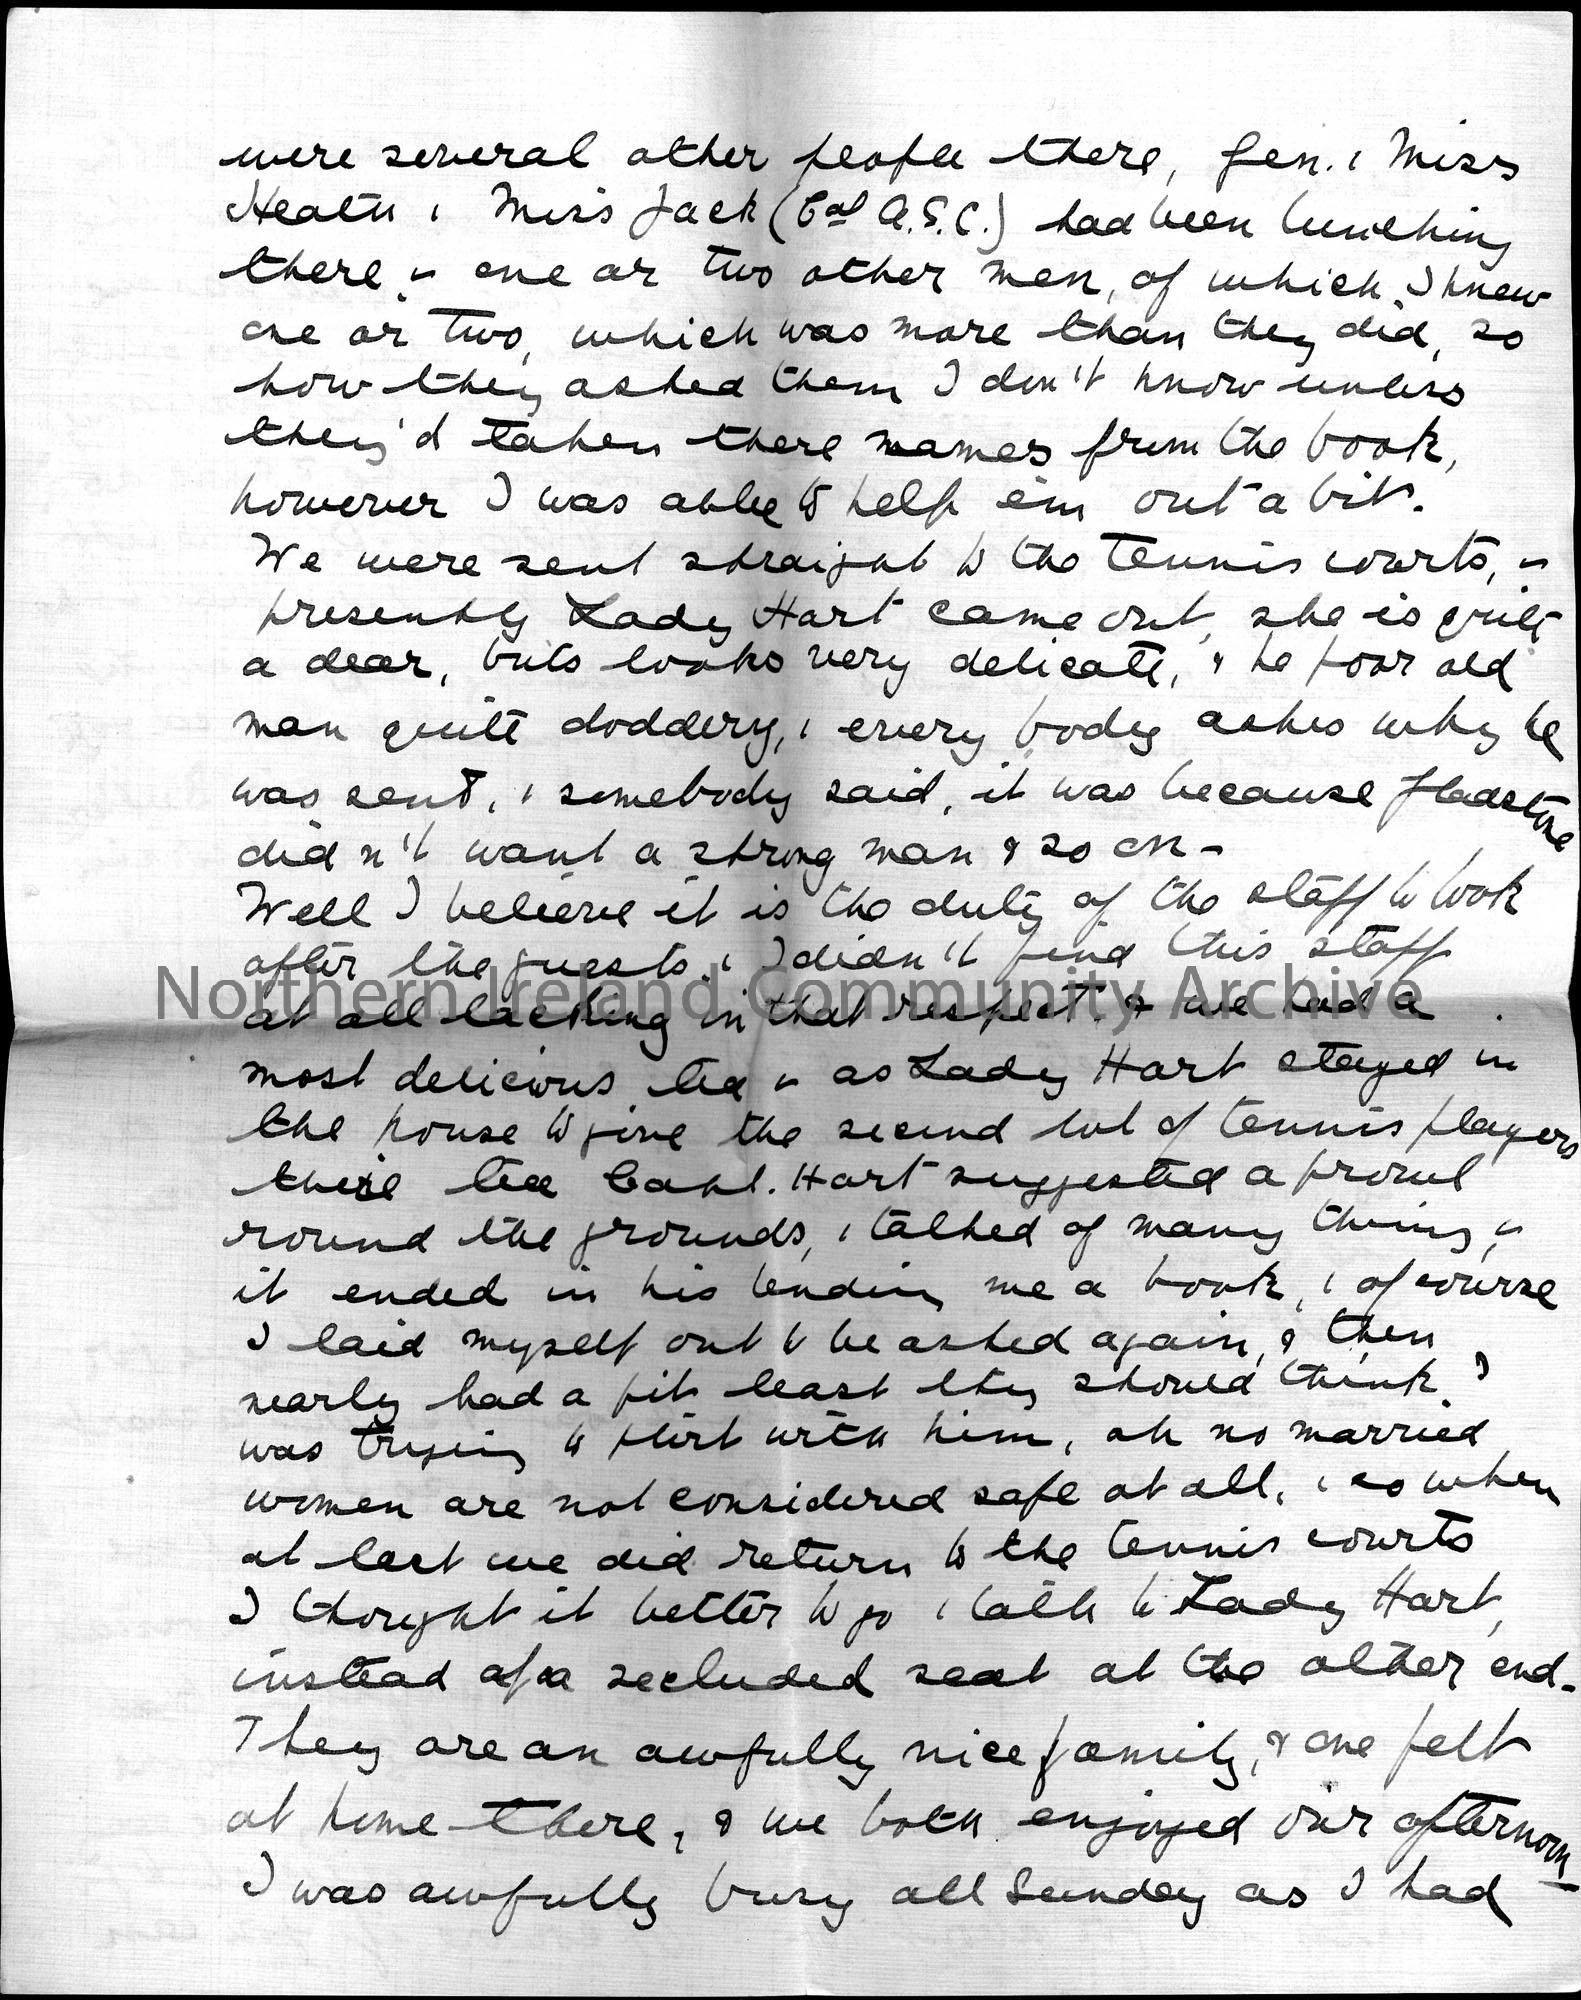 were several other people there, Gen. & Miss
Heath & Miss Jack (Col A.S.C.) had been lunching
there & one or two other men, of which I knew
one or two, which was more than they did, so
how they asked them I don't know unless
they'd taken there names from the book,
however I was able to help em out a bit.
We were sent straight to the tennis courts, &
presently Lady Hart came out, she is quite
a dear, but looks very delicate, & he poor old
man quite doddery, & every body asks why he
was sent, & somebody said, it was because Gladstone
didn't want a strong man & so on -
Well I believe it is the duty of the staff to look
after the guests & I didn't find this staff
at all lacking in that respect. & we had a
most delicious tea & as Lady Hart stayed in
the house to give the second lot of tennis players
their tea Capt. Hart suggested a prowl
round the grounds, & talked of many things, &
it ended in his lending me a book, & of course
I laid myself out to be asked again, & then
nearly had a fit least they should think I
was trying to flirt with him, oh no married
women are not considered safe at all, & so when
at last we did return to the tennis courts
I thought it better to go & talk to Lady Hart,
instead of a secluded seat at the other end -
They are an awfully nice family, & one felt
at home there, & we both enjoyed our afternoon -
I was awfully busy all Sunday as I had
Northern Ireland Community Archive